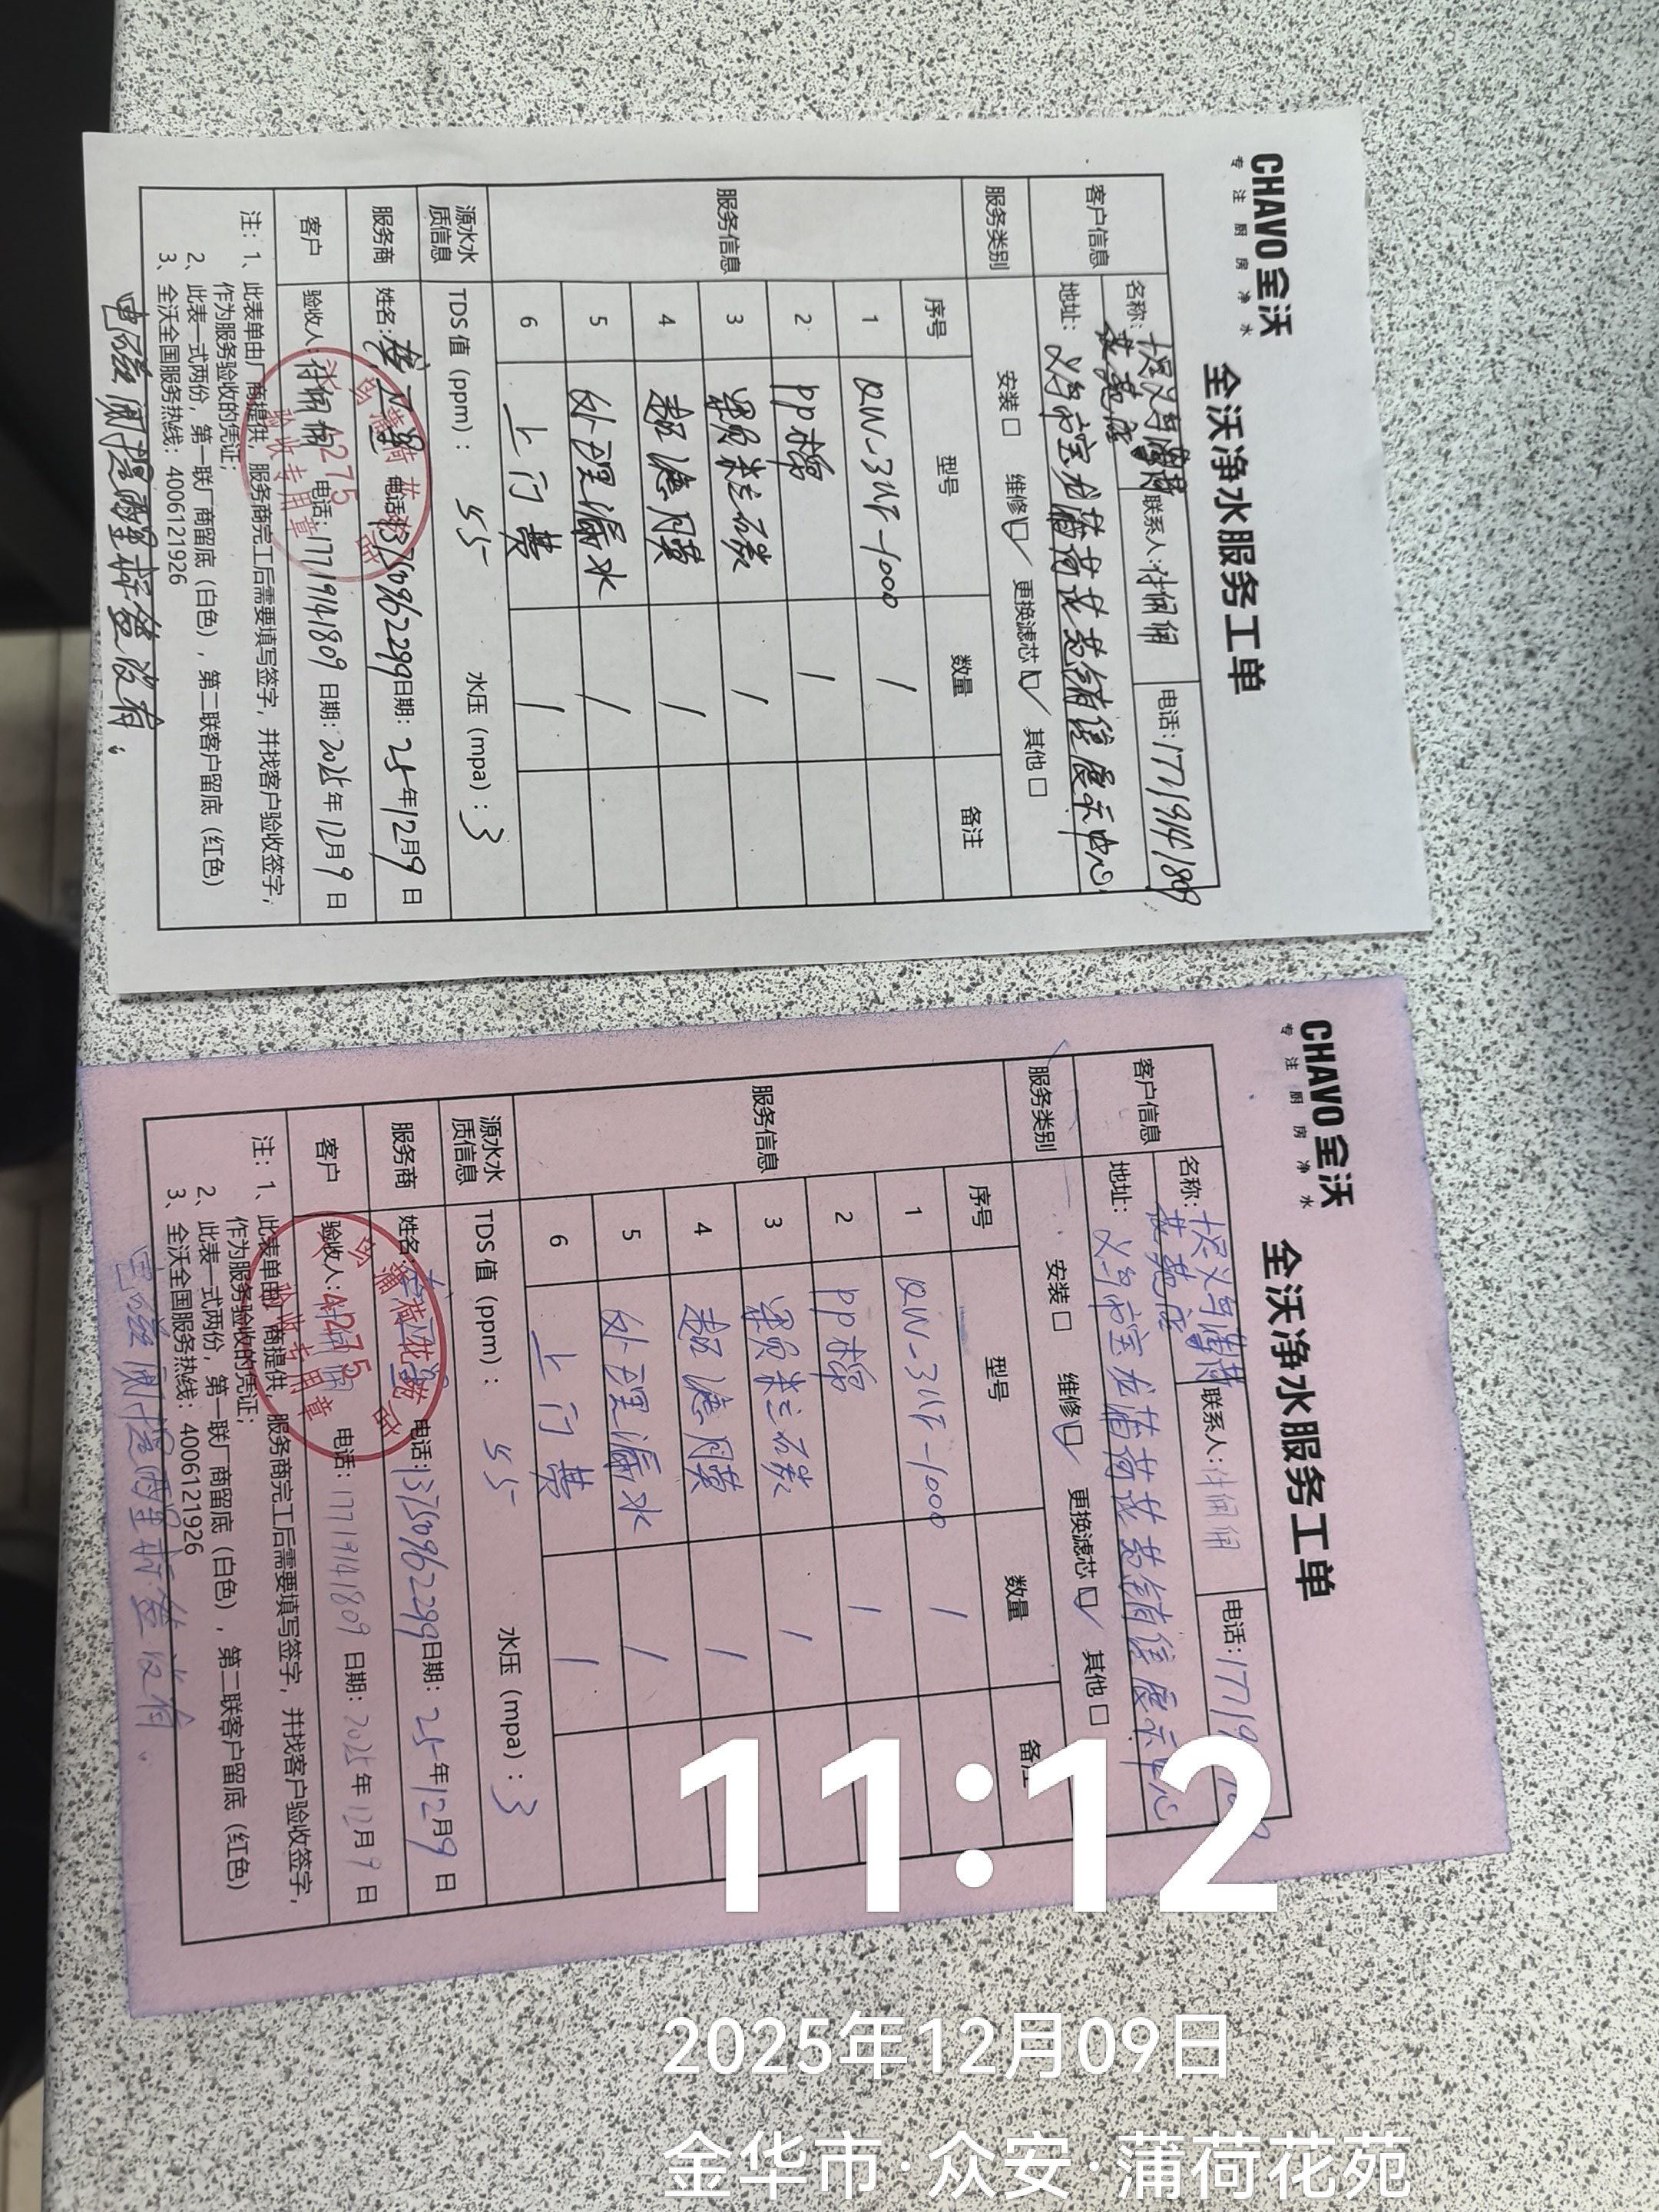 CHAVO 全沃
专注厨房净水
全沃净水服务工单
客户信息
名称: 义乌蒲荷花苑店
联系人: 佩佩
电话: 17719141809
地址: 义乌市宝龙蒲荷花苑销售展示中心
服务类别
安装□ 维修☑ 更换滤芯☑ 其他□
服务信息
序号 型号 数量 备注
1 QW-31F-1000 1
2 PP棉 1
3 颗粒碳 1
4 超滤膜 1
5 处理漏水 1
6 上门费 1
源水水质信息
TDS 值 (ppm): 55 水压 (mpa): 3
服务商
姓名: 电话: 13750962299 日期: 25年12月9日
客户
验收人: 佩佩 电话: 17719141809 日期: 2025年12月9日
注: 1、此表单由厂商提供, 服务商完工后需要填写签字, 并找客户验收签字,
作为服务验收的凭证;
2、此表一式两份, 第一联厂商留底 (白色), 第二联客户留底 (红色)
3、全沃全国服务热线: 4006121926
电磁阀提醒新签没有.
蒲荷花
4275
验收专用章
CHAVO 全沃
专注厨房净水
全沃净水服务工单
客户信息
名称: 义乌蒲荷花苑店
联系人: 佩佩
电话: 17719
地址: 义乌市宝龙蒲荷花苑销售展示中心
服务类别
安装□ 维修☑ 更换滤芯☑ 其他□
服务信息
序号 型号 数量 备注
1 QW-31F-1000 1
2 PP棉 1
3 颗粒碳 1
4 超滤膜 1
5 处理漏水 1
6 上门费 1
源水水质信息
TDS 值 (ppm): 55 水压 (mpa): 3
服务商
姓名: 电话: 13750962299 日期: 25年12月9日
客户
验收人: 电话: 17719141809 日期: 2025年12月9日
注: 1、此表单由厂商提供, 服务商完工后需要填写签字, 并找客户验收签字,
作为服务验收的凭证;
2、此表一式两份, 第一联厂商留底 (白色), 第二联客户留底 (红色)
3、全沃全国服务热线: 4006121926
电磁阀提醒新签没有.
蒲荷花苑
4275
验收专用章
11:12
2025年12月09日
金华市·众安·蒲荷花苑